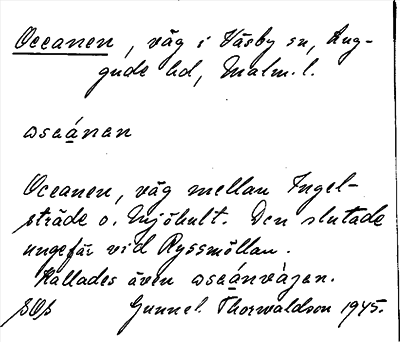 Oceanen, väg i Väsby sn, Lug-
gude hd, Malm. l.
oseánen
Oceanen, väg mellan Ingel-
sträde o. Mjöhult. Den slutade
ungefär vid Ryssmöllan.
Kallades även oseánvägen.
Gunnel Thorwaldson 1945.